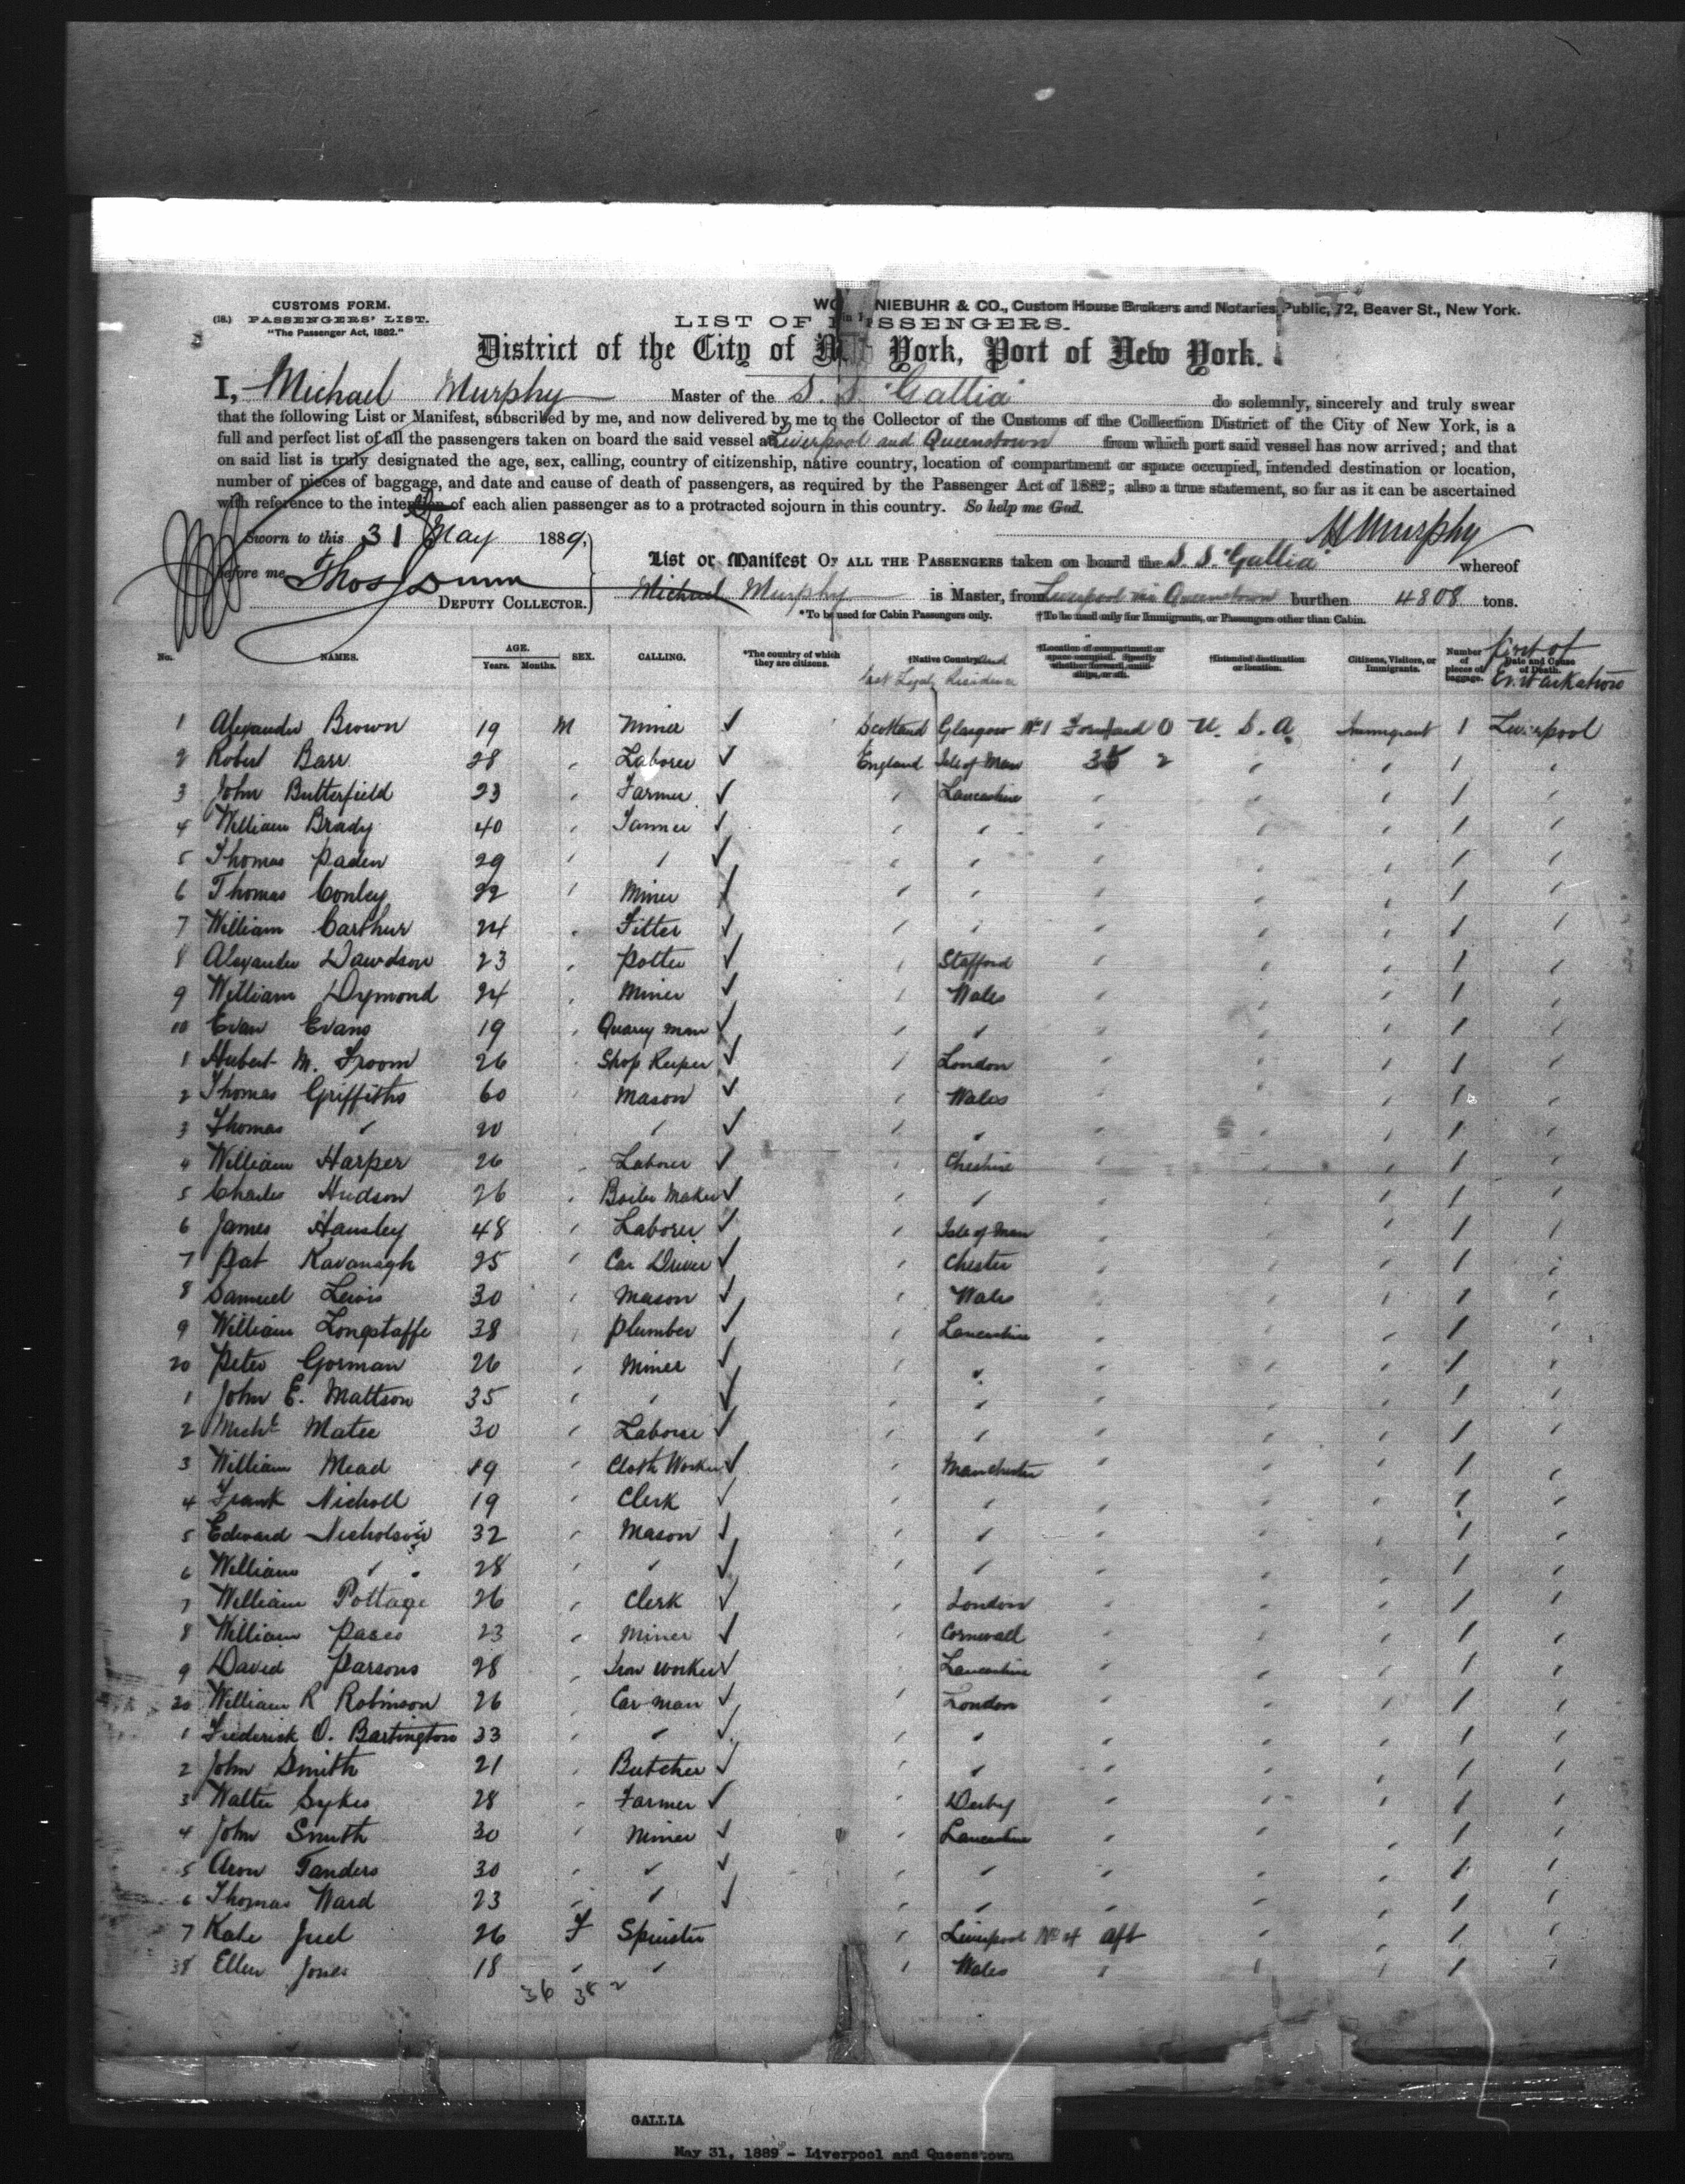 CUSTOMS FORM.
(18.) PASSENGERS' LIST.
"The Passenger Act, 1882."
NIEBUHR & CO., Custom House Brokers and Notaries Public, 72, Beaver St., New York.
LIST OF PASSENGERS.
District of the City of New York, Port of New York.
I, Michael Murphy Master of the S. S. "Gallia" do solemnly, sincerely and truly swear
that the following List or Manifest, subscribed by me, and now delivered by me to the Collector of the Customs of the Collection District of the City of New York, is a
full and perfect list of all the passengers taken on board the said vessel at Liverpool and Queenstown from which port said vessel has now arrived; and that
on said list is truly designated the age, sex, calling, country of citizenship, native country, location of compartment or space occupied, intended destination or location,
number of pieces of baggage, and date and cause of death of passengers, as required by the Passenger Act of 1882; also a true statement, so far as it can be ascertained
with reference to the intention of each alien passenger as to a protracted sojourn in this country. So help me God.
Sworn to this 31 May 1889,
M Murphy
before me Thos Dunn
DEPUTY COLLECTOR.
List or Manifest OF ALL THE PASSENGERS taken on board the S. S. "Gallia" whereof
Michael Murphy is Master, from Liverpool via Queenstown burthen 4808 tons.
*To be used for Cabin Passengers only. †To be used only for Immigrants, or Passengers other than Cabin.
No. NAMES. AGE. Years. Months. SEX. CALLING. *The country of which they are citizens. †Native Country and last Legal Residence †Location of compartment or space occupied. Specify whether forward, amidships, or aft. †Intended destination or location. Citizens, Visitors, or Immigrants. Number of pieces of baggage. Date and Cause of Death. Port of Embarkation
1 Alexander Brown 19 M Miner ✓ Scotland Glasgow No 1 Forward O U. S. A. Immigrant 1 Liverpool
2 Robert Barr 28 " Laborer ✓ England Isle of Man 35 2 " " 1 "
3 John Butterfield 23 " Farmer ✓ " Lancashire " " " 1 "
4 William Brady 40 " Tanner ✓ " " " " " 1 "
5 Thomas Paden 29 " " ✓ " " " " " 1 "
6 Thomas Conley 22 " Miner ✓ " " " " " 1 "
7 William Carthur 24 " Fitter ✓ " " " " " 1 "
8 Alexander Dawdson 23 " Potter ✓ " Stafford " " " 1 "
9 William Dymond 24 " Miner ✓ " Wales " " " 1 "
10 Evan Evans 19 " Quarry man ✓ " " " " " 1 "
1 Hubert M. Froom 26 " Shop Keeper ✓ " London " " " 1 "
2 Thomas Griffiths 60 " Mason ✓ " Wales " " " 1 "
3 Thomas " 20 " " ✓ " " " " " 1 "
4 William Harper 26 " Laborer ✓ " Cheshire " " " 1 "
5 Charles Hudson 26 " Boiler Maker ✓ " " " " " 1 "
6 James Hansley 48 " Laborer ✓ " Isle of Man " " " 1 "
7 Pat Kavanagh 25 " Car Driver ✓ " Chester " " " 1 "
8 Samuel Lewis 30 " Mason ✓ " Wales " " " 1 "
9 William Longstaffe 38 " Plumber ✓ " Lancashire " " " 1 "
20 Peter Gorman 26 " Miner ✓ " " " " " 1 "
1 John E. Mattson 35 " " ✓ " " " " " 1 "
2 Michl Matee 30 " Laborer ✓ " " " " " 1 "
3 William Mead 19 " Cloth Worker ✓ " Manchester " " " 1 "
4 Frank Nicholl 19 " Clerk ✓ " " " " " 1 "
5 Edward Nicholson 32 " Mason ✓ " " " " " 1 "
6 William " 28 " " ✓ " " " " " 1 "
7 William Pottage 26 " Clerk ✓ " London " " " 1 "
8 William Pasco 23 " Miner ✓ " Cornwall " " " 1 "
9 David Parsons 28 " Iron Worker ✓ " Lancashire " " " 1 "
30 William R Robinson 26 " Car man ✓ " London " " " 1 "
1 Frederick O. Bartington 33 " " ✓ " " " " " 1 "
2 John Smith 21 " Butcher ✓ " " " " " 1 "
3 Walter Sykes 28 " Farmer ✓ " Derby " " " 1 "
4 John Smith 30 " Miner ✓ " Lancashire " " " 1 "
5 Aron Tanders 30 " " ✓ " " " " " 1 "
6 Thomas Ward 23 " " ✓ " " " " " 1 "
7 Kate Juel 26 F Spinster " Liverpool No 4 aft " " 1 "
38 Ellen Jones 18 " " " Wales " " " 1 "
36 38 2
GALLIA
May 31, 1889 - Liverpool and Queenstown